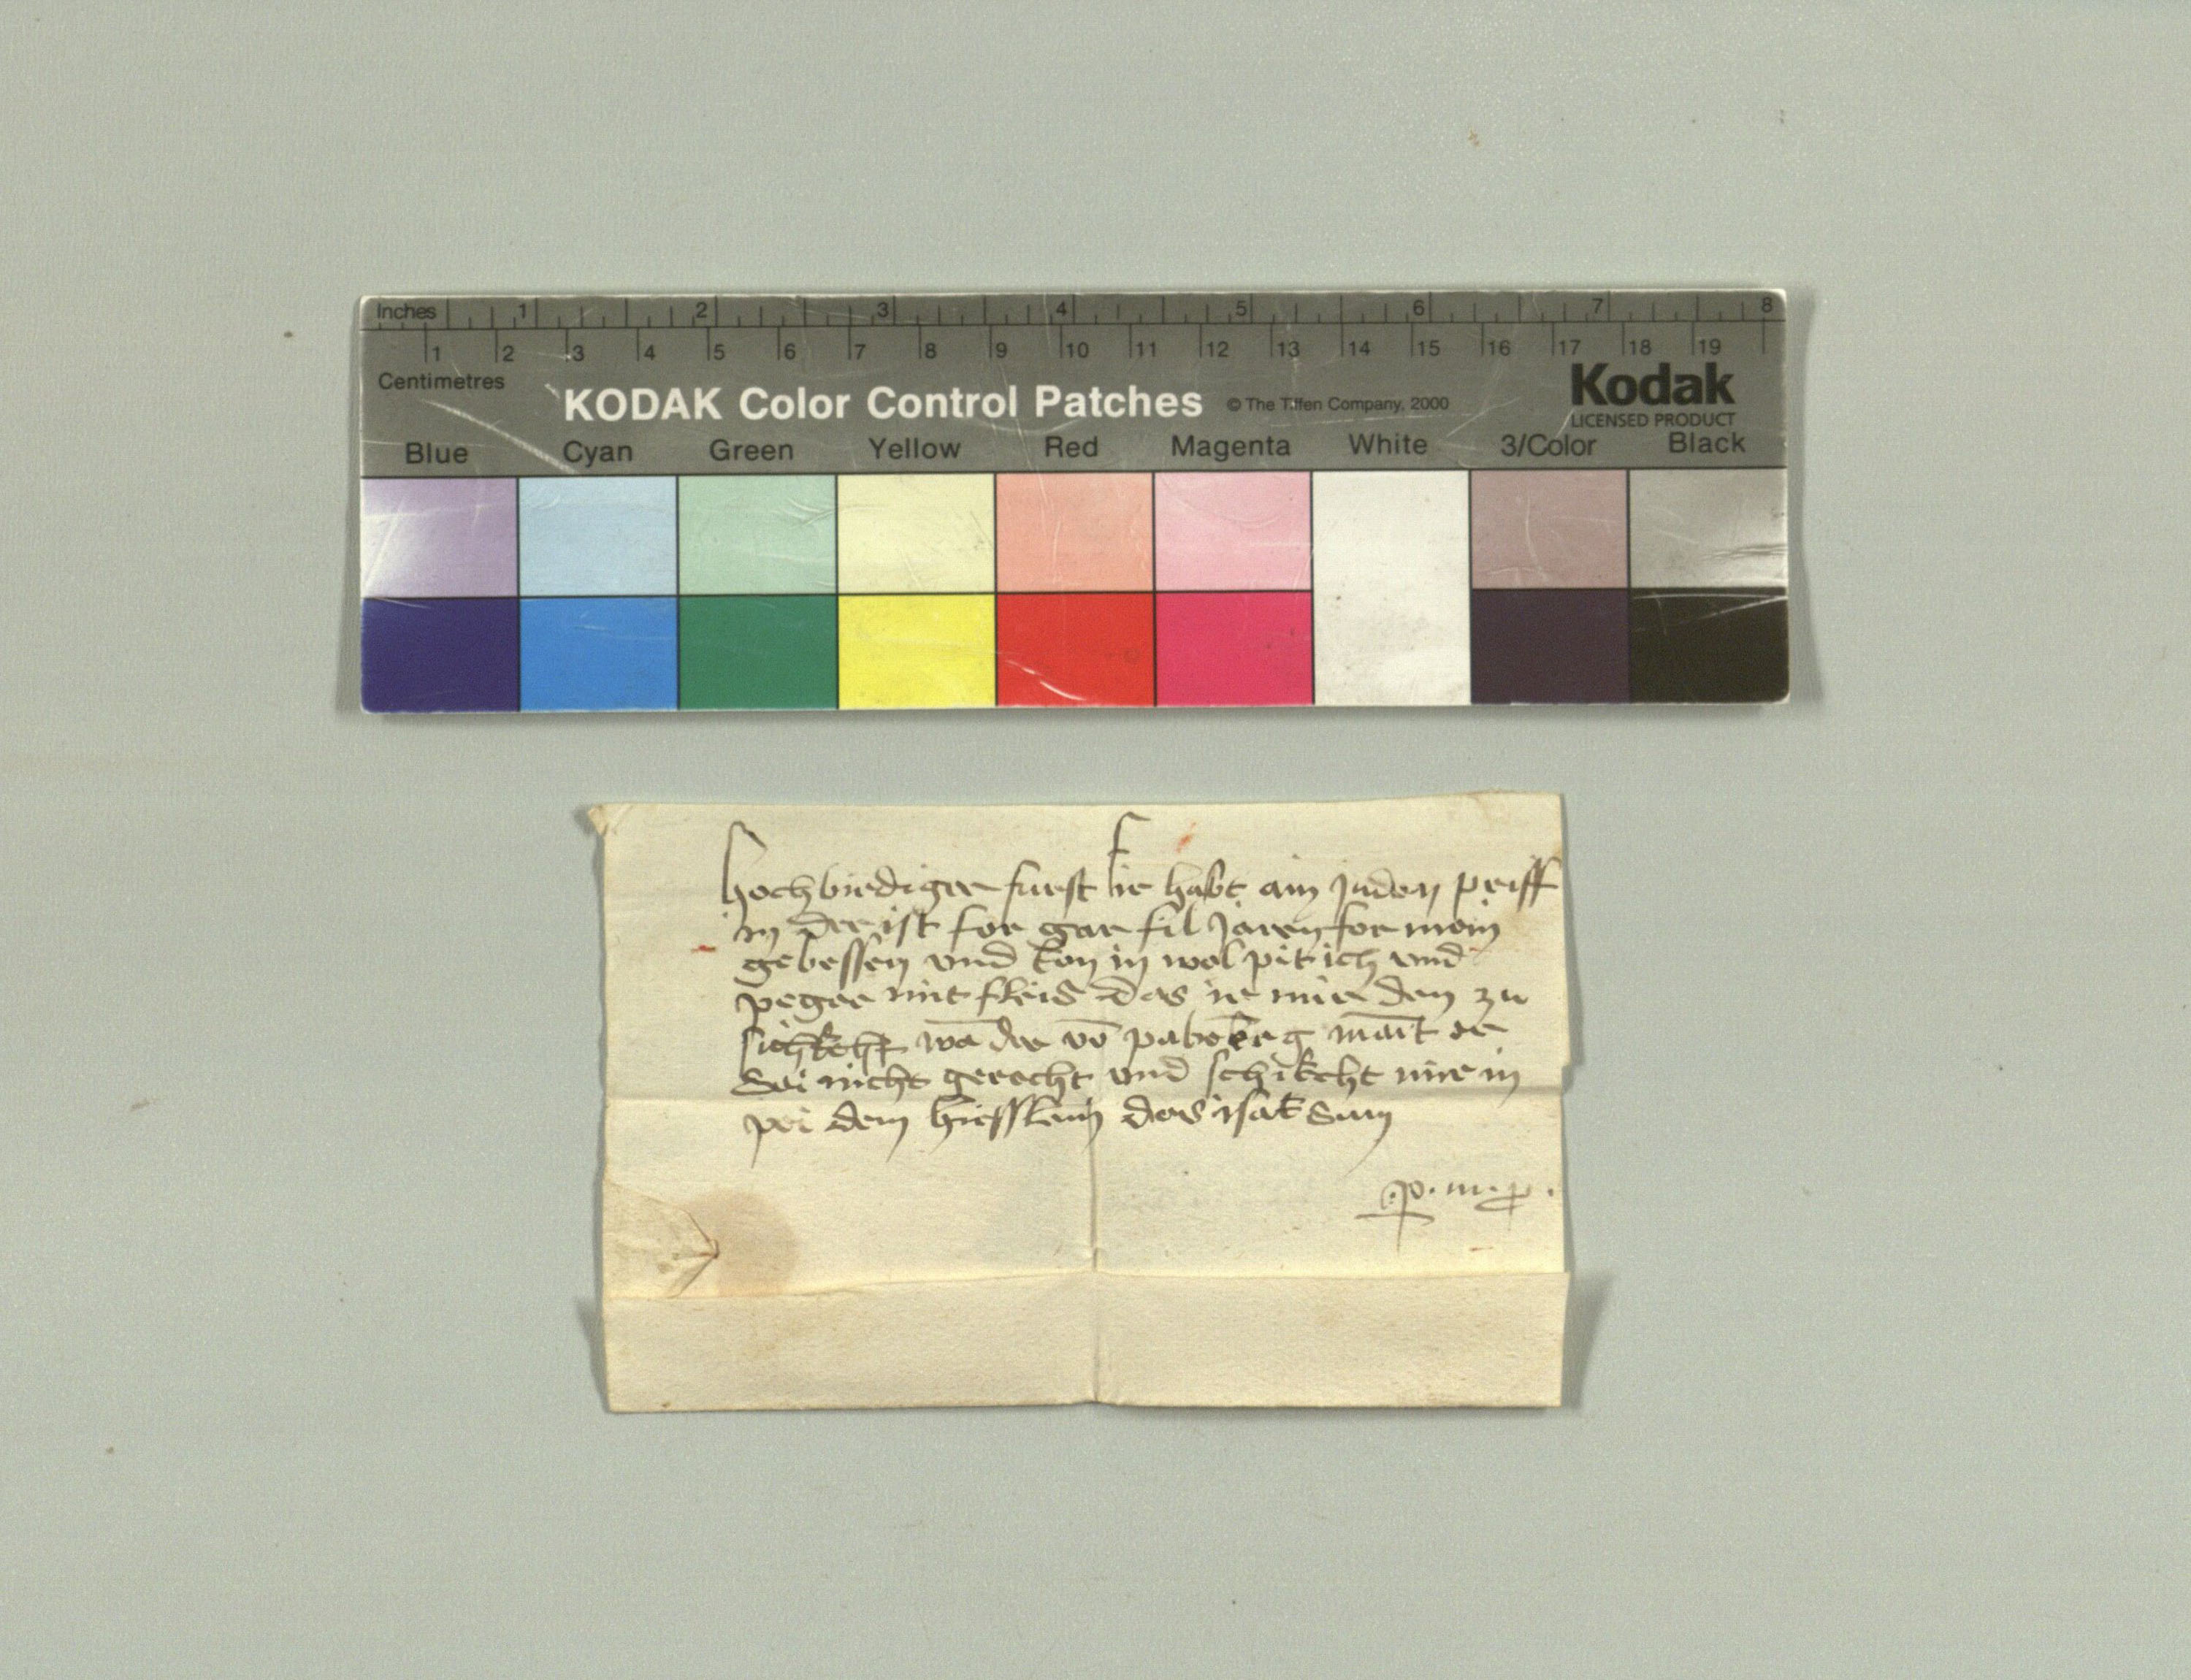 Inches 1 2 3 4 5 6 7 8
1 2 3 4 5 6 7 8 9 10 11 12 13 14 15 16 17 18 19
Centimetres
KODAK Color Control Patches © The Tiffen Company, 2000 Kodak
LICENSED PRODUCT
Blue Cyan Green Yellow Red Magenta White 3/Color Black
hochbirdiger furst ir habt ain juden priff
in der ist for gar fil jaren for mein
gebessen vnd kon in wol pit ich vnd
peger mit fleis das ir mir den zu
wā der vō
sei nicht gerecht vnd schikcht mir in
pei dem das isak sum
p. m. p.